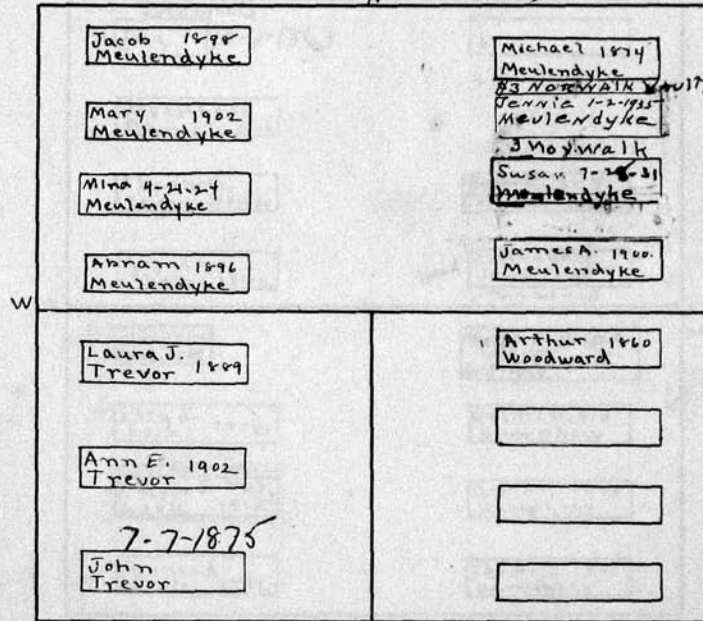 Jacob 1898
Meulendyke
Mary 1902
Meulendyke
Mina 4-21-24
Meulendyke
Abram 1896
Meulendyke
Michael 1874
Meulendyke
#3 Norwalk Vault
Jennie 1-2-1935
Meulendyke
3 Norwalk
Susan 7-28-31
Meulendyke
James A. 1900.
Meulendyke
W
Laura J.
Trevor 1889
Ann E. 1902
Trevor
7-7-1875
John
Trevor
Arthur 1860
Woodward